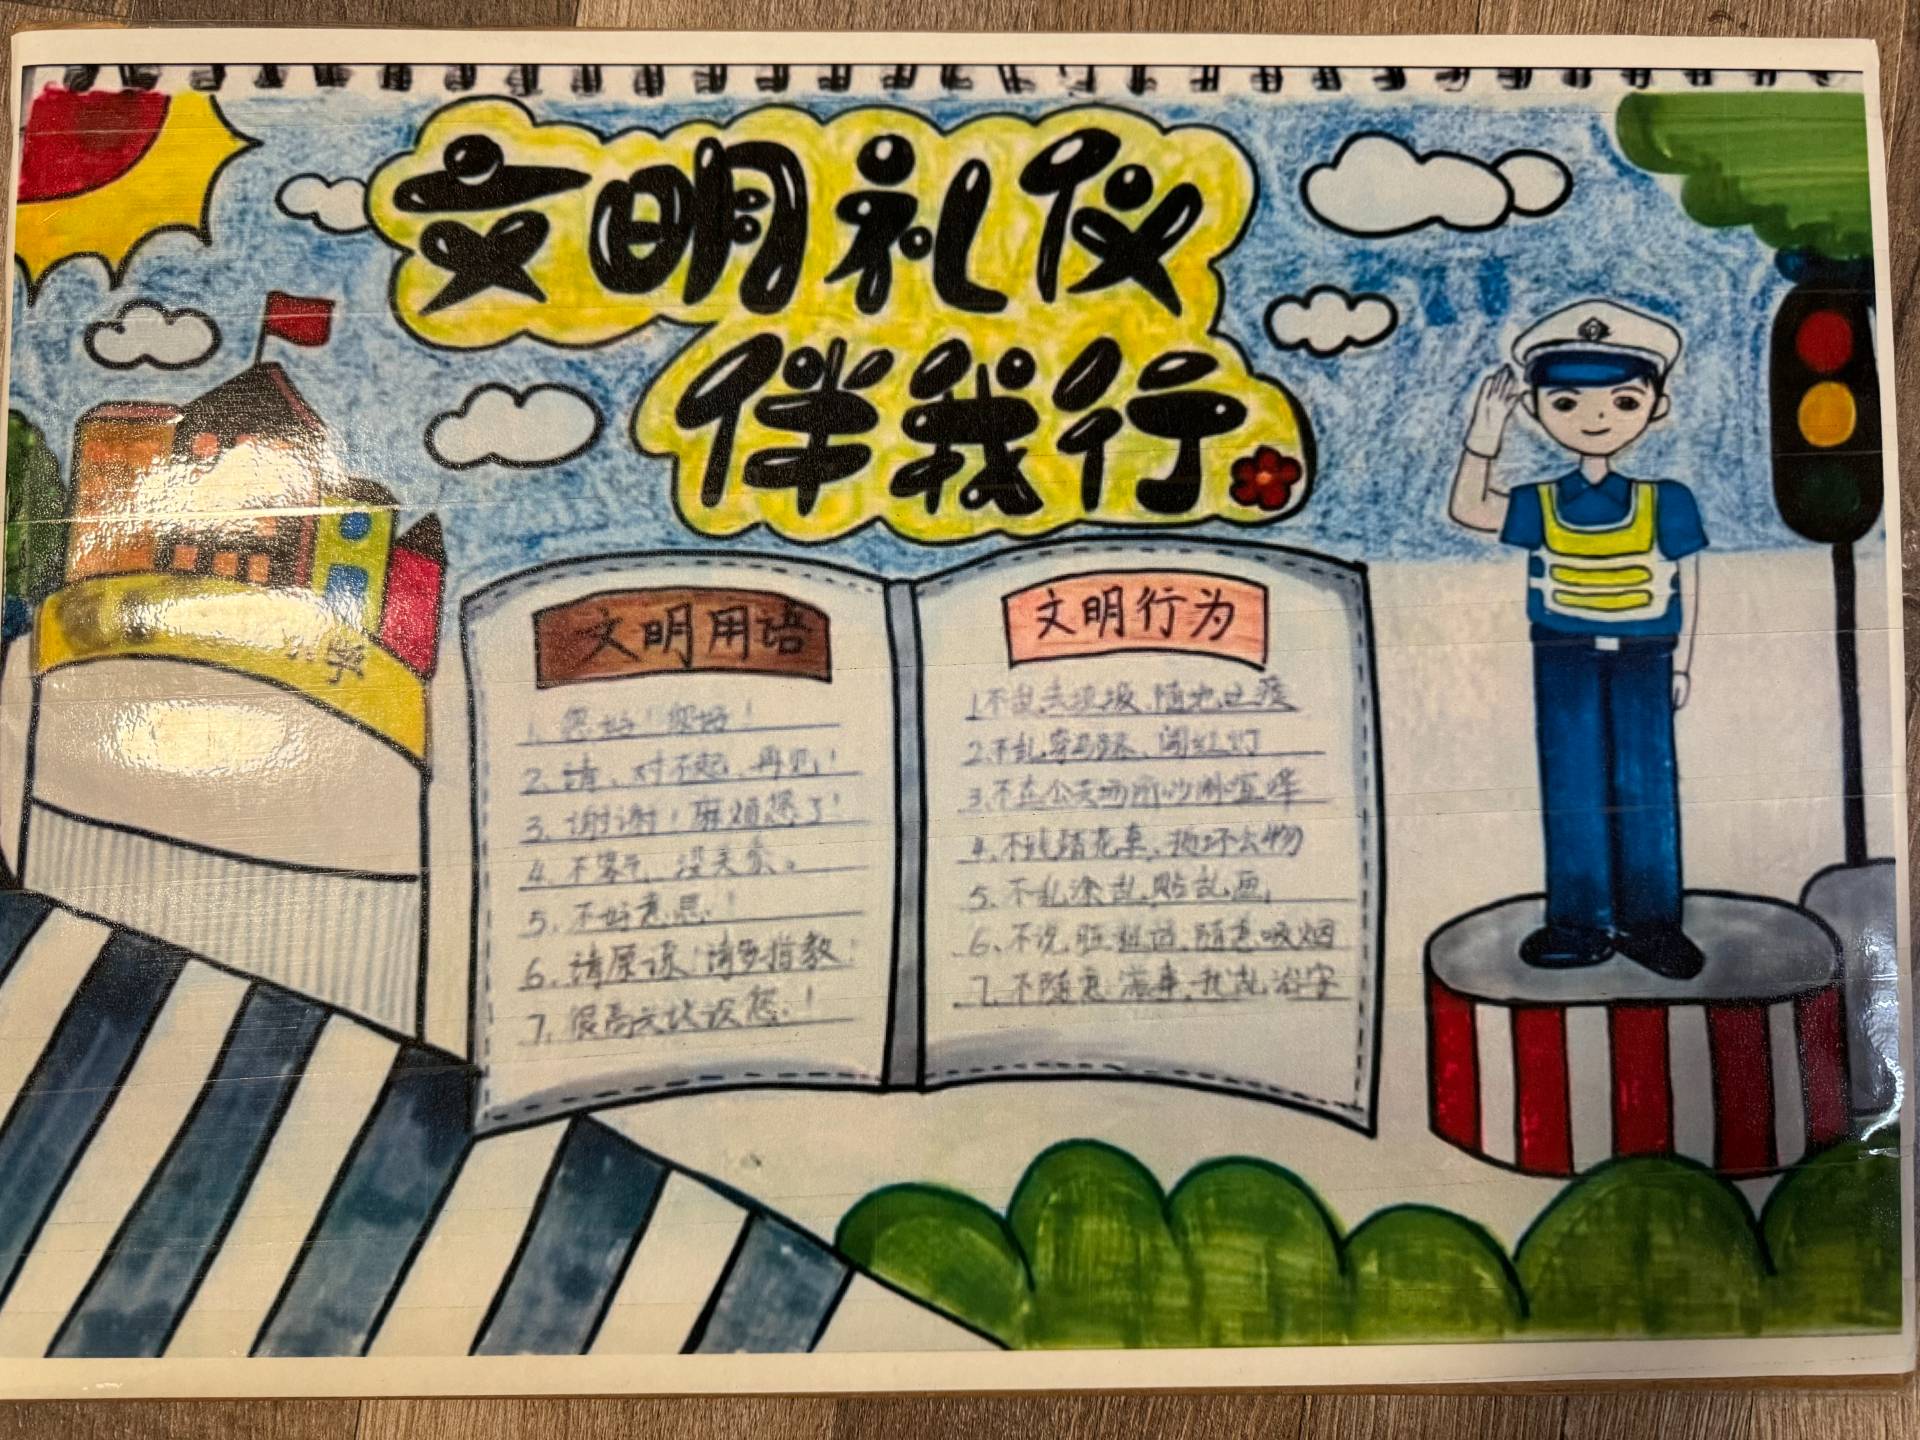 文明礼仪
伴我行
小学
文明用语
1. 您好！您好！
2. 请、对不起、再见！
3. 谢谢！麻烦您了！
4. 不客气、没关系。
5. 不好意思！
6. 请原谅！请多指教！
7. 很高兴认识您！
文明行为
1. 不乱丢垃圾、随地吐痰
2. 不乱穿马路、闯红灯
3. 不在公共场所吵闹喧哗
4. 不践踏花草、损坏公物
5. 不乱涂乱贴乱画
6. 不说脏话、随意吸烟
7. 不随意滋事、